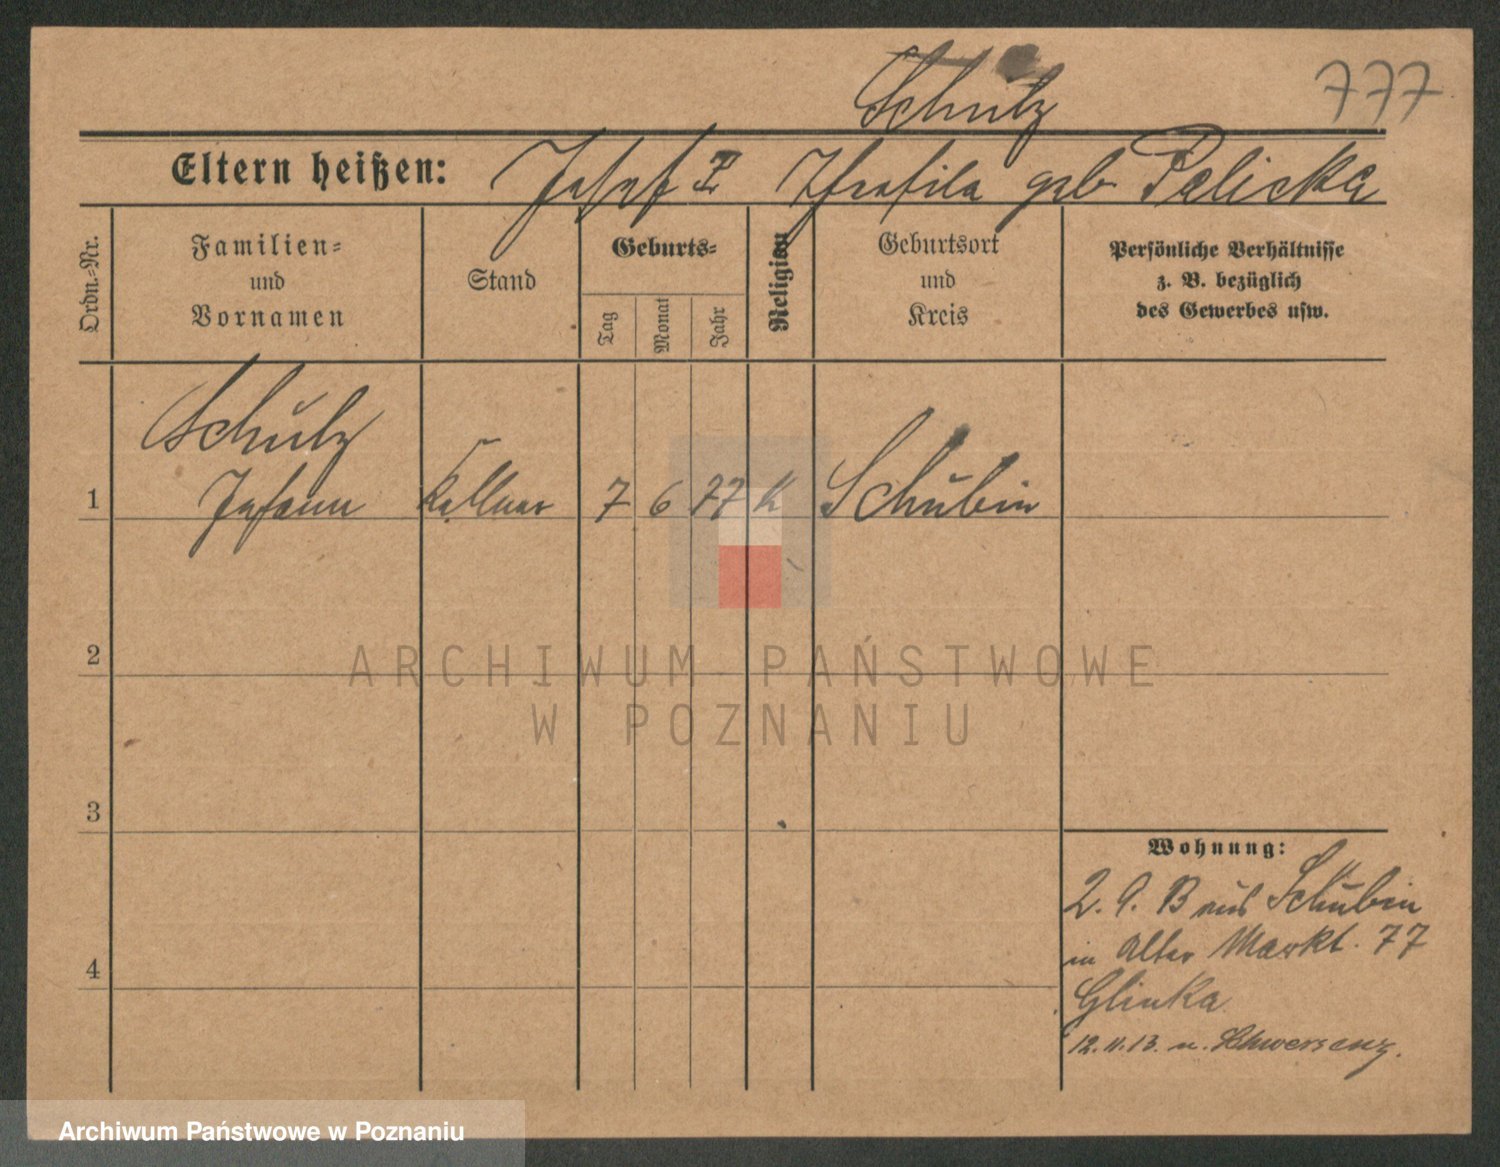 Schulz
777
Eltern heißen: Josef geb. Palicka
Ordn.-Nr.
Familien-
und
Vornamen
Stand
Geburts-
Tag
Monat
Jahr
Religion
Geburtsort
und
Kreis
Persönliche Verhältnisse
z. B. bezüglich
des Gewerbes usw.
Schulz
1 Johann Kellner 7 6 77 K Schubin
2
ARCHIWUM PAŃSTWOWE
W POZNANIU
3
4
Wohnung:
2. 9. 13 aus Schubin
in Alter Markt. 77
Glinka
12. 11. 13. n. Schwersenz.
Archiwum Państwowe w Poznaniu